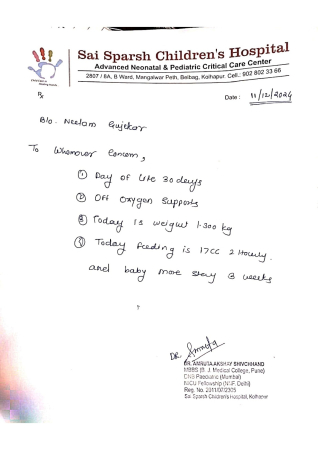 Sai Sparsh Children's Hospital
Advanced Neonatal & Pediatric Critical Care Center
2807 / 6A, B Ward, Mangalwar Peth, Belbag, Kolhapur. Cell.: 902 802 33 66
Rx
Date : 11/12/2024
B/o. Neelam Gujekar
To Whomever Concern,
① Day of life 30 days
② Off oxygen supports
③ Today is weight 1.300 kg
④ Today feeding is 17cc 2 Hourly.
and baby more stay 3 weeks
DR.
DR. AMRUTA AKSHAY SHIVCHHAND
MBBS (B. J. Medical College, Pune)
DNB Paediatric (Mumbai)
NICU Fellowship (NNF, Delhi)
Reg. No. 2011/07/2305
Sai Sparsh Children's Hospital, Kolhapur